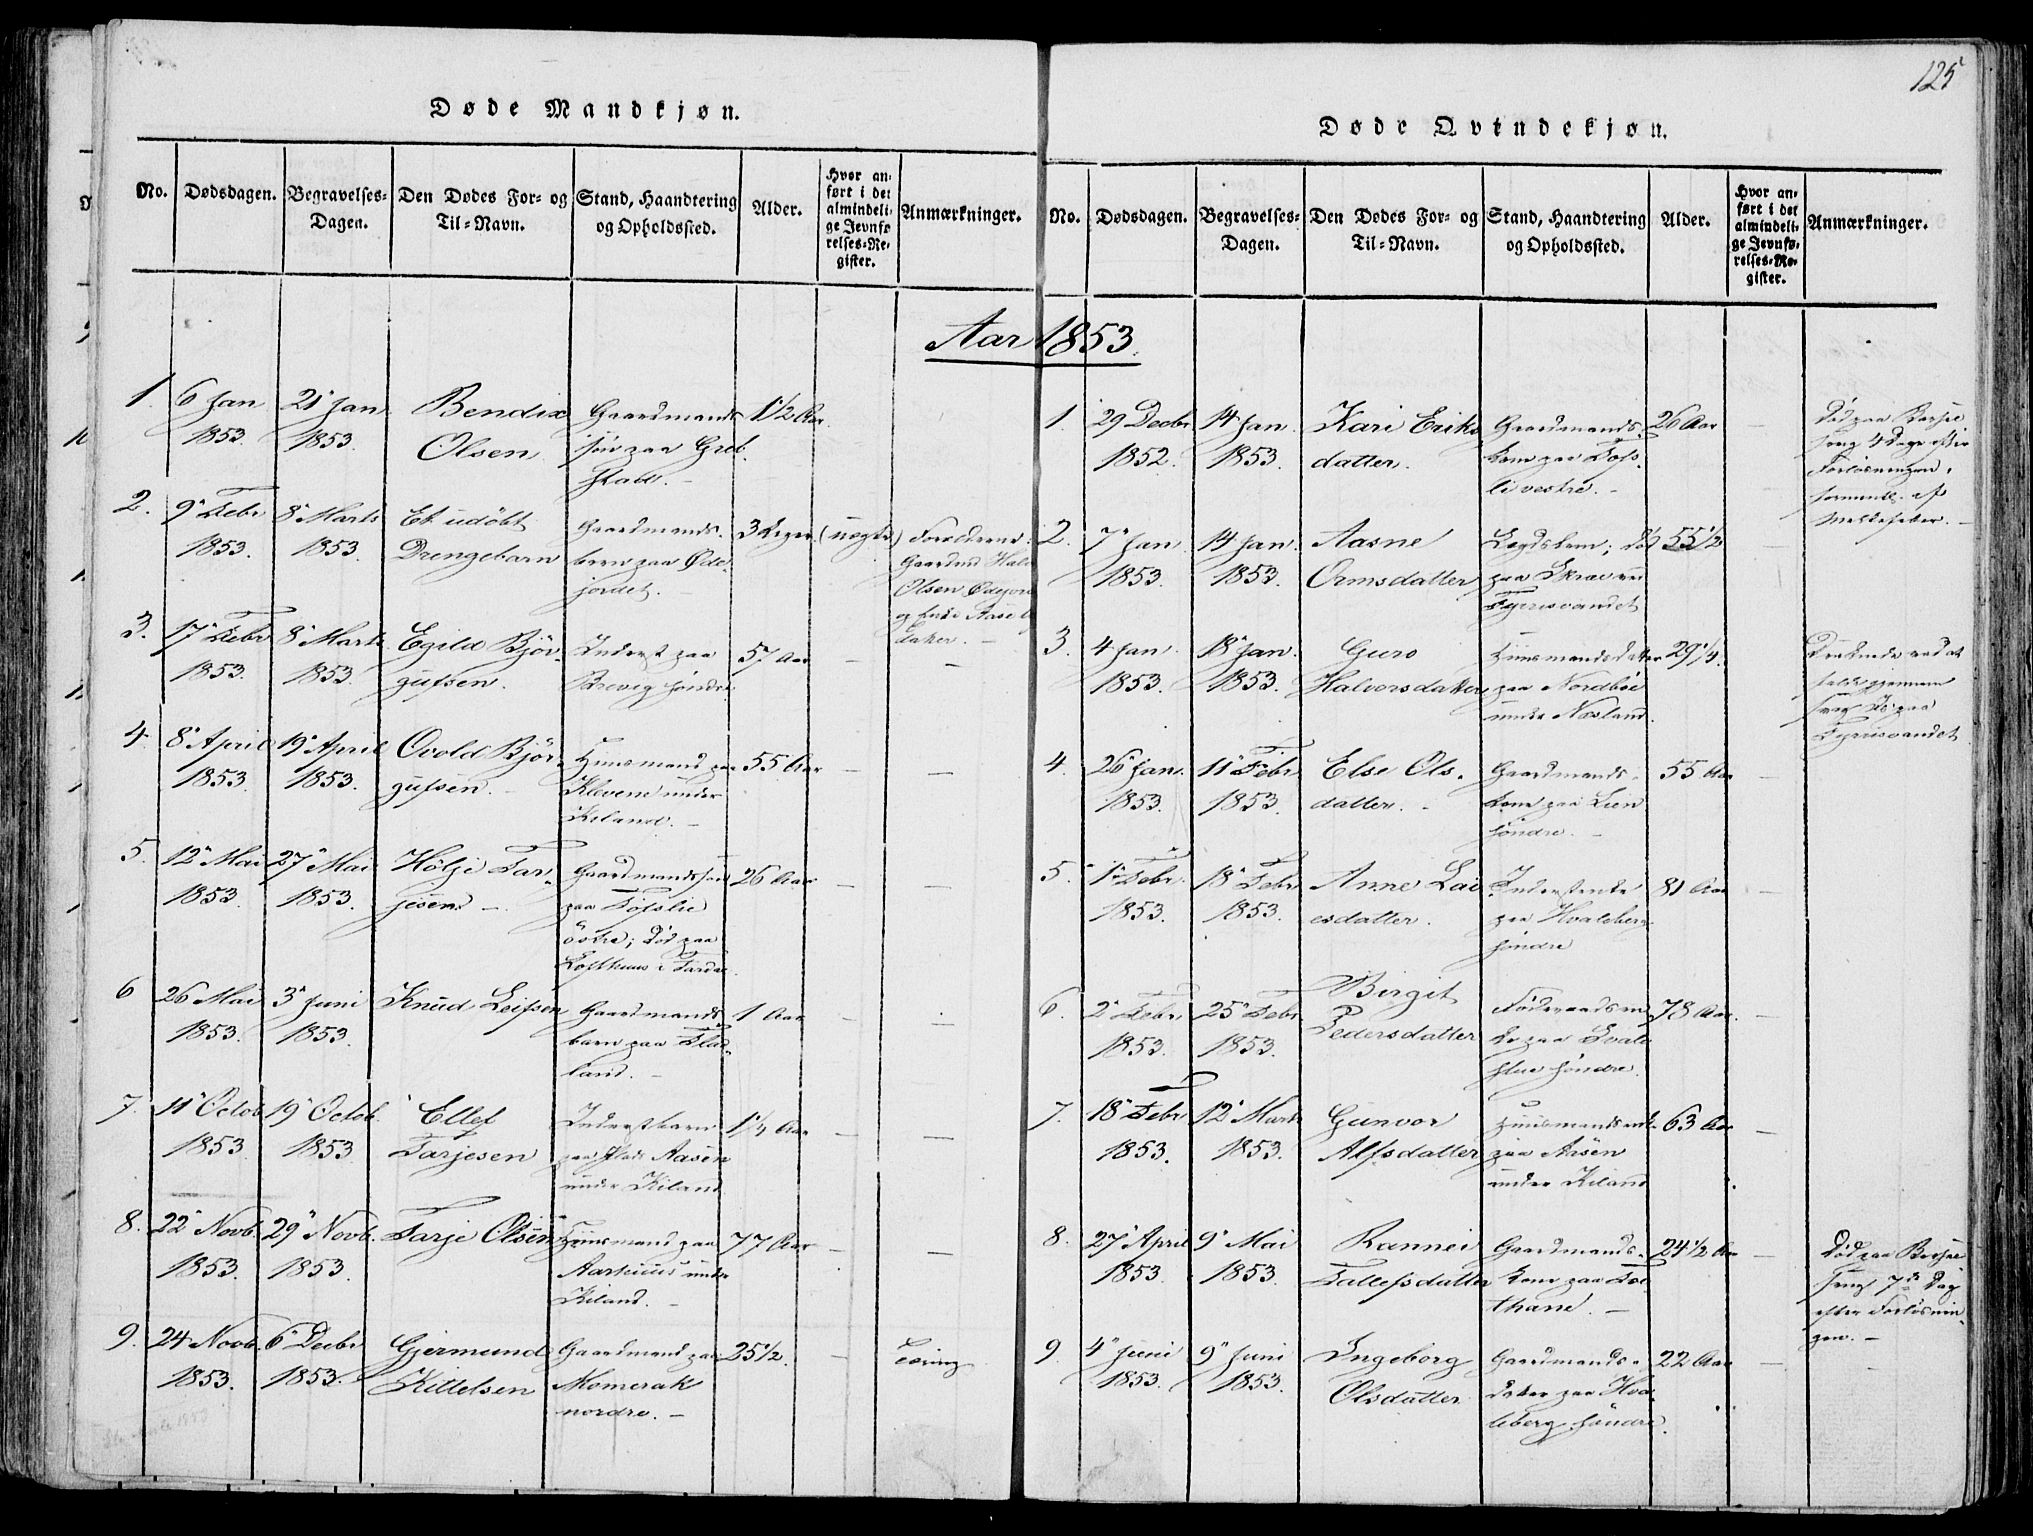 125
Døde Mandkjøn.
No. Dødsdagen. Begravelses-Dagen. Den Dødes For- og Til-Navn. Stand, Haandtering og Opholdssted. Alder. Hvor anført i det almindelige Jevnførelses-Register. Anmærkninger.
Aar 1853.
1. 6 Jan 21 Jan Bendix Gaardmands 1 1/2 Aar.
1853. 1853. Olsen søn paa Greb
stad.
2. 9 Febr 8 Marts Et udöbt Gaardmands 3 Uger. (uægte)
1853. 1853. Drengebarn barn paa Øde
jordet.
Forældrene:
Gaardmd
Olsen Ødejord
3. 17 Febr 8 Marts Egild Björ Inderst paa 57 Aar
1853. 1853. gufsen. Brevig søndre
4. 8 April 19 April Ovold Björ Huusmand paa 55 Aar
1853. 1853. gufsen. Klevene under
Kiland.
5. 12 Mai 27 Mai Hölje Tar Gaardmandssøn 26 Aar
1853. 1853. jesen paa Tofslie
östre; död paa
6 26 Mai 3 Juni Knud Leifsen Gaardmands 1 Aar
1853. 1853. barn paa Flad
land.
7. 11 Octob 19 Octob. Ellef Inderstbarn 1 1/4 Aar
1853. 1853 Tarjesen paa Plads Aasen
under Kiland
8. 22 Novb. 29 Novb. Tarje Olsen Huusmand paa 77 Aar
1853. 1853. under
Kiland.
9. 24 Novb. 6 Decbr Gjermund Gaardmand paa 25 1/2.
1853. 1853. Kittelsen Momerak
nordre.
Døde Qvindekjøn.
No. Dødsdagen. Begravelses-Dagen. Den Dødes For- og Til-Navn. Stand, Haandtering og Opholdssted. Alder. Hvor anført i det almindelige Jevnførelses-Register. Anmærkninger.
1. 29 Decbr 14 Jan. Kari Eriks Gaardmands 26 Aar
1852. 1853. datter. kone paa Tofs
li vestre.
Død paa Barsel
seng 4 Dage efter
Forløsningen,
2. 7 Jan. 14 Jan. Aasne Lægdslem; død 55 1/2
1853. 1853. Ormsdatter paa
Fyrrisvandet
3. 4 Jan. 18 Jan. Guro Huusmandsdatter 29 1/4.
1853. 1853. Halvorsdatter paa Nordböe
under Næsland.
Druknede ved at
falde gjennem
Is paa
Fyrrisvandet
4. 26 Jan. 11 Febr Else Ols Gaardmands 55 Aar
1853. 1853 datter. kone paa Lien
söndre.
5. 1 Febr. 18 Febr Anne Lai Inderstenke 81 Aar
1853. 1853. esdatter. paa Hvaleberg
söndre
6. 2 Febr. 25 Febr. Birgit 78 Aar.
1853. 1853. Pedersdatter paa Svale
stue söndre.
7. 18 Febr 12 Marts Gunvor Huusmandsenke 63 Aar
1853. 1853. Alfsdatter paa Aasen
under Kiland
8. 27 April 9 Mai Rannei Gaardmands 24 1/2 Aar
1853. 1853. Tallefsdatter kone paa
thane.
Død paa Barsel
seng 7de Dag
efter Forløsnin
gen.
9. 4 Juni 9 Juni Ingeborg Gaardmands 22 Aar
1853. 1853. Olsdatter datter paa Hva
leberg söndre.